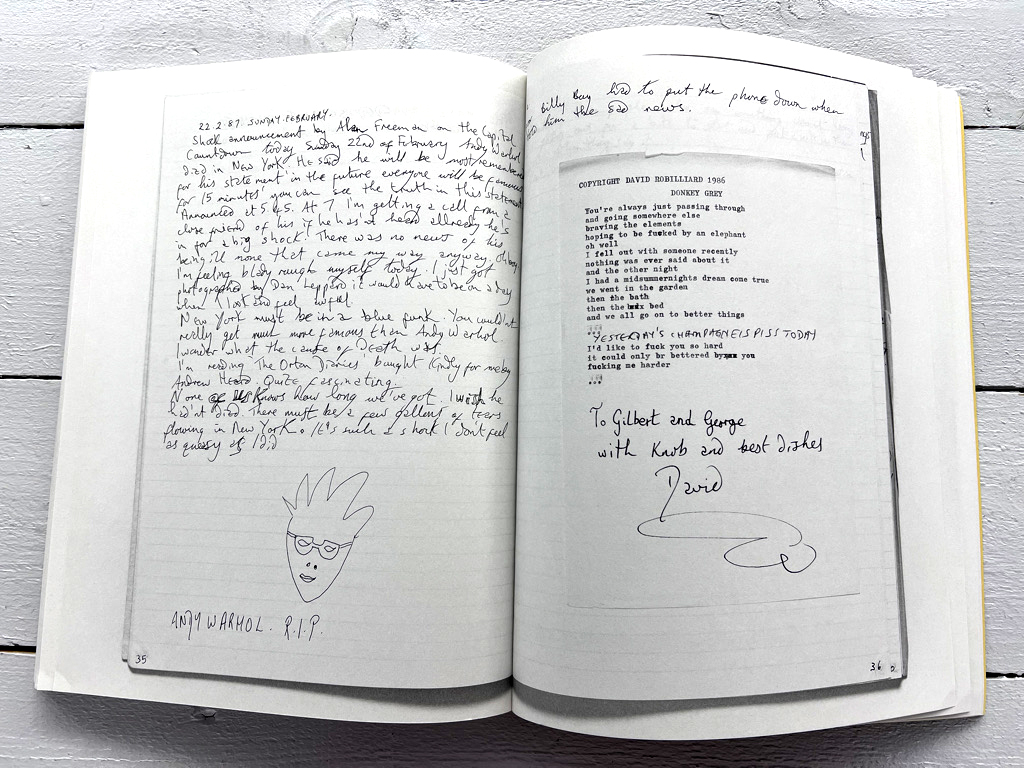 22.2.87. SUNDAY. FEBRUARY.
Shock announcement by Alan Freeman on the Capital
Countdown today Sunday 22nd of February Andy Warhol
died in New York. He said he will be most remembered
for his statement 'in the future everyone will be famous
for 15 minutes' you can see the truth in this statement
Announced at 5.45. At 7 I'm getting a call from a
close friend of his if he has'nt heard allready he's
in for a big shock! There was no news of his
being ill none that came my way anyway. Oh boy.
I'm feeling blady rough myself today. I just got
photographed by Dan Leppard it would have to be on a day
when I look and feel awful.
New York must be in a blue funk. You could'nt
really get much more famous than Andy Warhol
I wonder what the cause of death was.
I'm reading The Orton Diaries bought kindly for me by
Andrew Heard. Quite fascinating.
None of us knows how long we've got. I wish he
had'nt died. There must be a few gallons of tears
flowing in New York. It's such a shock I don't feel
as queasy as I did
ANDY WARHOL. R.I.P.
35
Billy Boy had to put the phone down when
him the sad news.
COPYRIGHT DAVID ROBILLIARD 1986
DONKEY GREY
You're always just passing through
and going somewhere else
braving the elements
hoping to be fucked by an elephant
oh well
I fell out with someone recently
nothing was ever said about it
and the other night
I had a midsummernights dream come true
we went in the garden
then the bath
then the bed
and we all go on to better things
***
YESTERDAY'S CHAMPAGNE IS PISS TODAY
I'd like to fuck you so hard
it could only br bettered by you
fucking me harder
***
To Gilbert and George
with Knob and best dishes
David
36